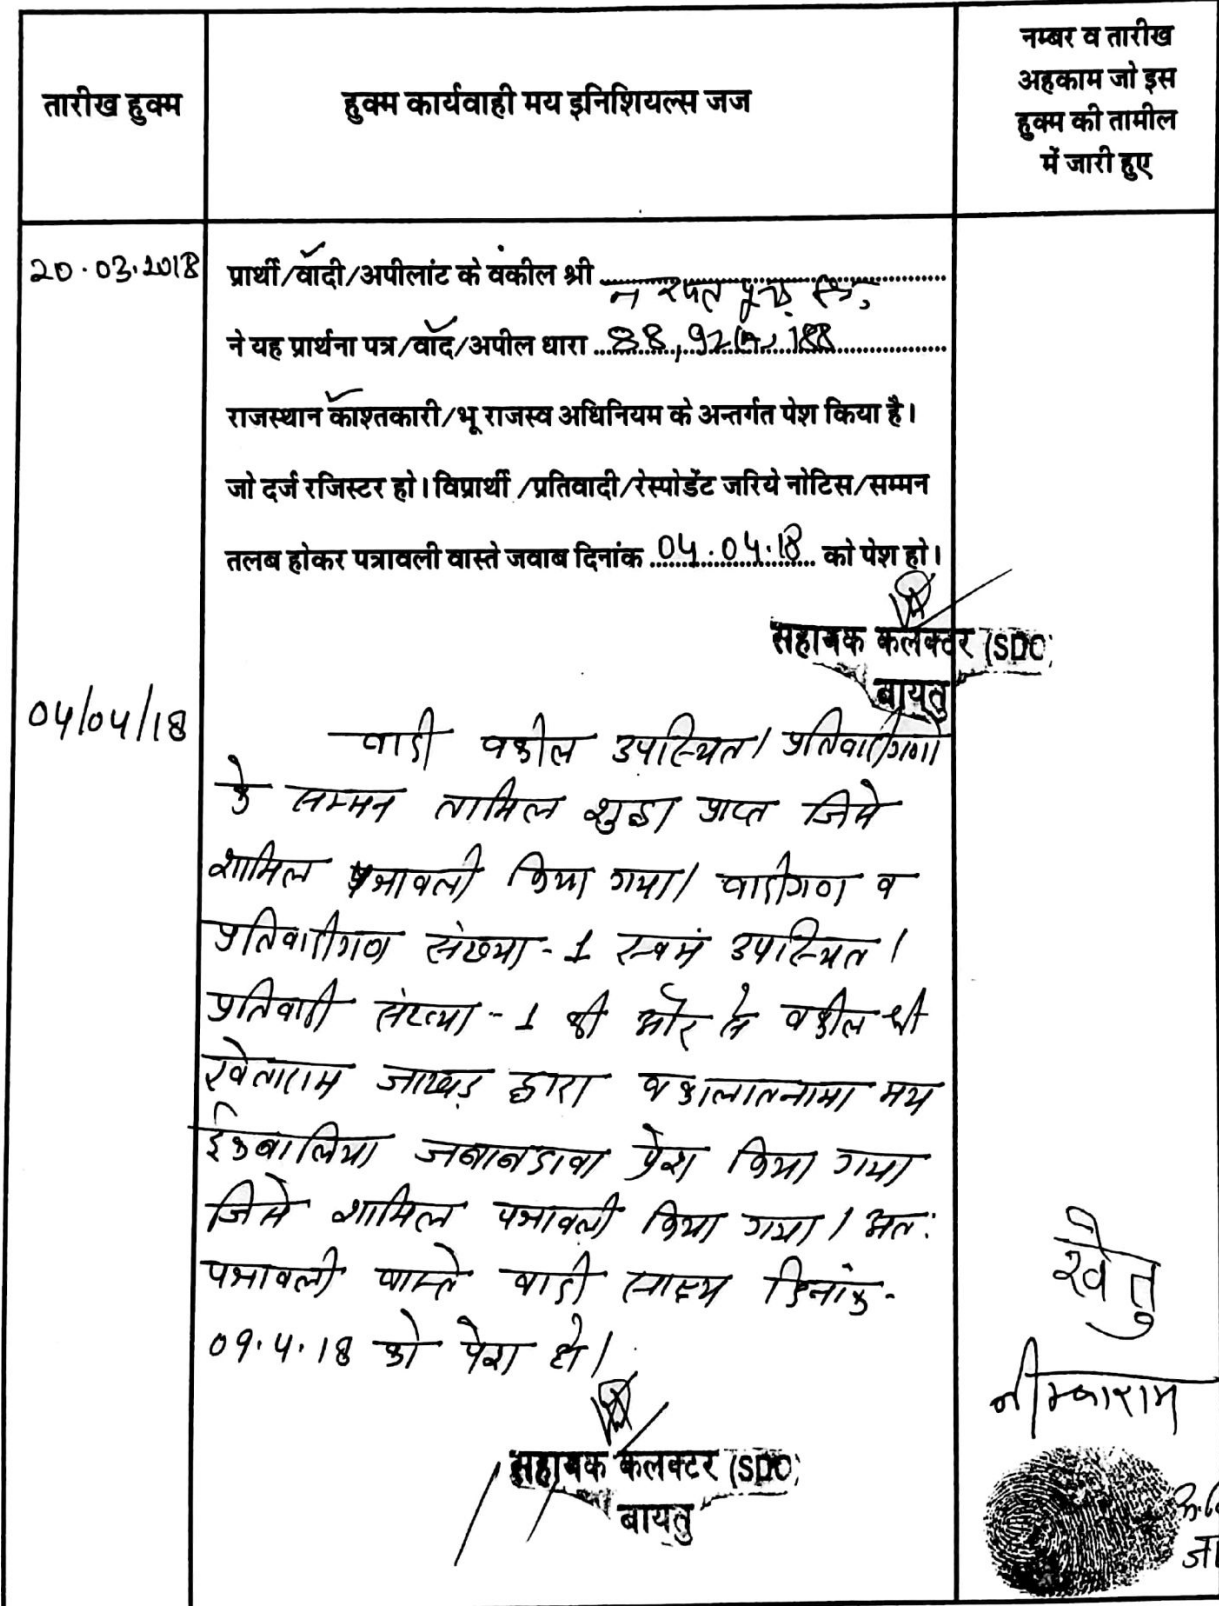 तारीख हुक्म
हुक्म कार्यवाही मय इनिशियल्स जज
नम्बर व तारीख
अहकाम जो इस
हुक्म की तामील
में जारी हुए
20.03.2018
प्रार्थी/वादी/अपीलांट के वकील श्री
ने यह प्रार्थना पत्र/वाद/अपील धारा 88, 92(A), 188
राजस्थान काश्तकारी/भू राजस्व अधिनियम के अन्तर्गत पेश किया है।
जो दर्ज रजिस्टर हो। विप्रार्थी/प्रतिवादी/रेस्पोडेंट जरिये नोटिस/सम्मन
तलब होकर पत्रावली वास्ते जवाब दिनांक 04.04.18 को पेश हो।
सहायक कलक्टर (SDO)
बायतु
04/04/18
वादी वकील उपस्थित। प्रतिवादीगणो
के सम्मन तामिल शुदा प्राप्त जिसे
शामिल पत्रावली किया गया। वादीगण व
प्रतिवादीगण संख्या-1 स्वयं उपस्थित।
प्रतिवादी संख्या-1 की ओर से वकील श्री
खेताराम जाखड़ द्वारा वकालातनामा मय
ईकबालिया जबाबदावा पेश किया गया
जिसे शामिल पत्रावली किया गया। अत:
पत्रावली वास्ते वादी साक्ष्य दिनांक-
09.4.18 को पेश हो।
सहायक कलक्टर (SDO)
बायतु
खेतु
नीम्बाराम